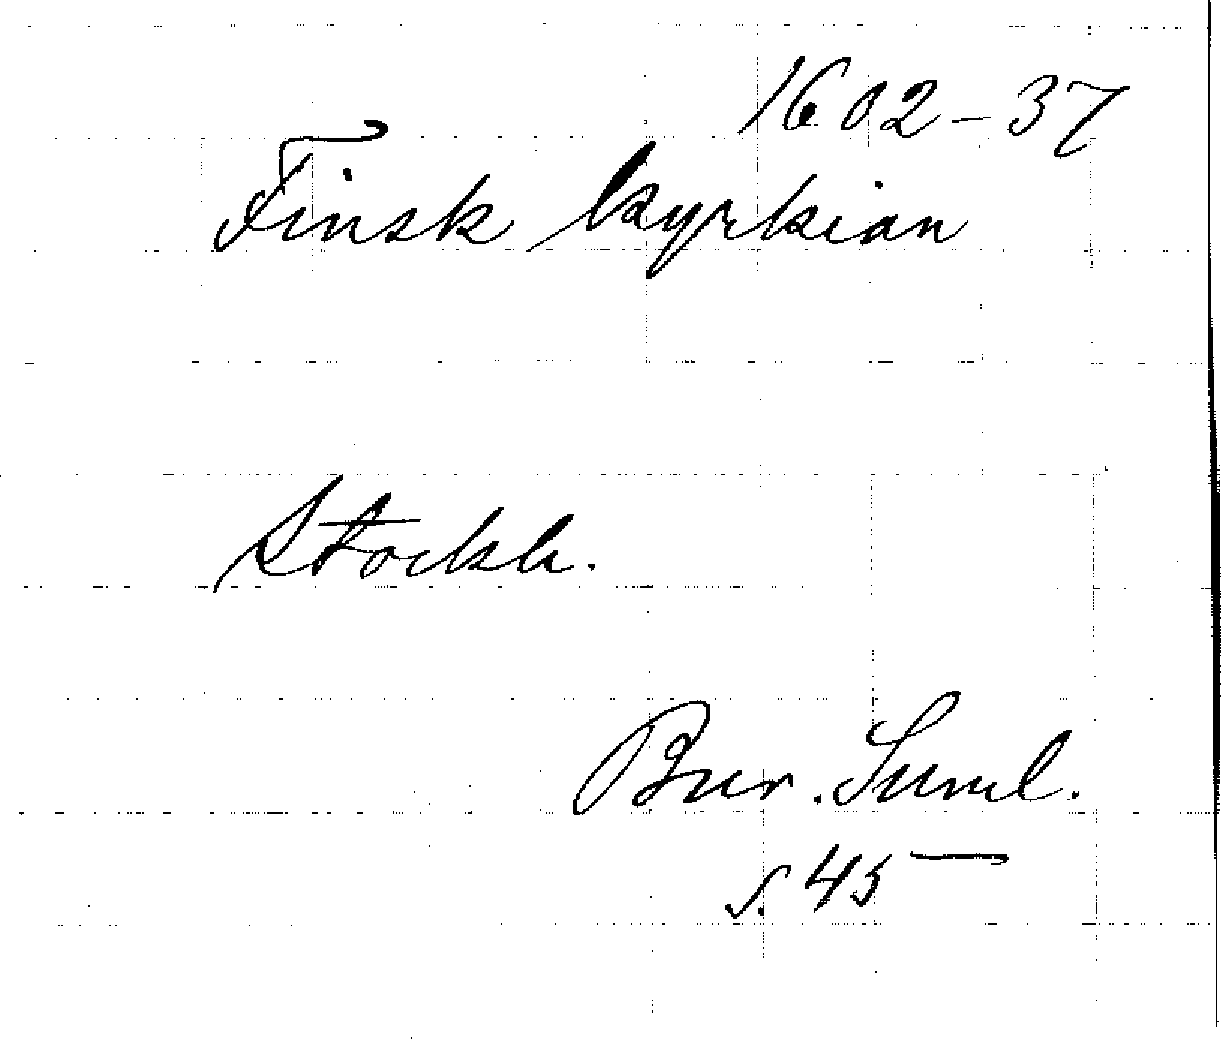 1602-37
Finsk kyrkian
Stockh.
Bur. Suml.
s. 45